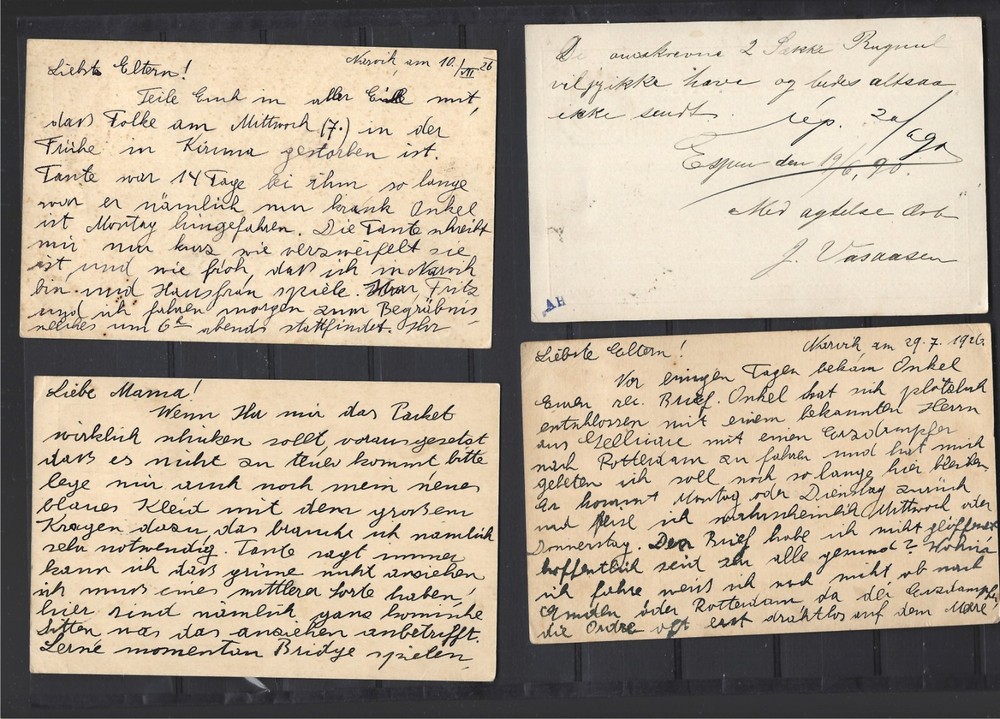 Liebste Eltern! Narvik, am 10./VII 26
Teile Euch in aller Eile mit,
daß Folke am Mittwoch (7.) in der
Frühe in Kiruna gestorben ist.
Tante war 14 Tage bei ihm so lange
war er nämlich nur krank Onkel
ist Montag hingefahren. Die Tante schreibt
mir nur kurz wie verzweifelt sie
ist und wie froh, daß ich in Narvik
bin und Hausfrau spiele. Fritz
und ich fahren morgen zum Begräbnis
welches um 6h abends stattfindet. Ihr
De omskrevne 2 Sække Rugmel
vil jeg ikke have og bedes altsaa
ikke sendt. rép. 20/6 90
Espen den 19/6, 90.
Med agtelseÆrb
J. Vasaasen
AH
Liebe Mama!
Wenn Ihr mir das Packet
wirklich schicken sollt, vorausgesetzt
daß es nicht zu teuer kommt bitte
lege mir auch noch mein neues
blaues Kleid mit dem großem
Kragen dazu, das brauche ich nämlich
sehr notwendig. Tante sagt immer
kann ich daß grüne nicht anziehen
ich muß eines mittlere Sorte haben,
hier sind nämlich ganz komische
Sitten was das anziehen anbetrifft.
Lerne momentan Bridge spielen,
Liebste Eltern! Narvik am 29.7.1926.
Vor einigen Tagen bekam Onkel
Euren rec. Brief. Onkel hat sich plötzlich
entschlossen mit einem bekannten Herrn
aus Gellivare mit einen Erzdampfer
nach Rotterdam zu fahren und hat mich
gebeten ich soll noch so lange hier bleiben
Er kommt Montag oder Dienstag zurück
und reise ich wahrscheinlich Mittwoch oder
Donnerstag. Den Brief habe ich nicht geöffnet
hoffentlich seid Ihr alle gesund? Wohin
ich fahre weiß ich noch nicht ob nach
Emden oder Rotterdam da der Erzdampfer
die Ordre oft erst drahtlos auf dem Meere